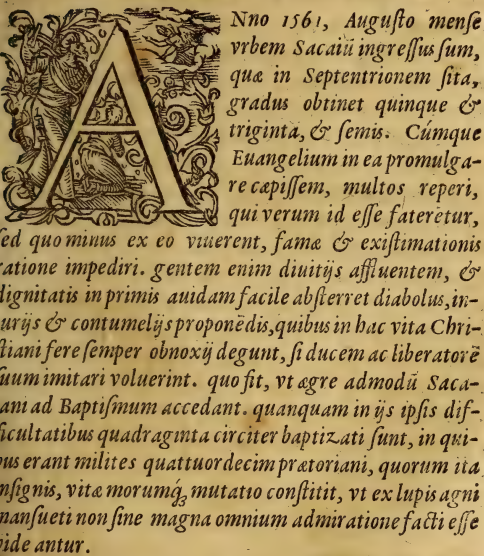 ANno 1561, Augusto mense
vrbem Sacaiũ ingressus sum,
quæ in Septentrionem sita,
gradus obtinet quinque &
triginta, & semis. Cúmque
Euangelium in ea promulga-
re cæpissem, multos reperi,
qui verum id esse fateretur,
sed quo minus ex eo viuerent, famæ & existimationis
ratione impediri. gentem enim diuitijs affluentem, &
dignitatis in primis auidam facile absterret diabolus, in-
iurijs & contumelijs proponẽdis, quibus in hac vita Chri-
stiani fere semper obnoxij degunt, si ducem ac liberatorẽ
suum imitari voluerint. quo fit, vt ægre admodũ Saca-
iani ad Baptismum accedant. quanquam in ijs ipsis dif-
ficultatibus quadraginta circiter baptizati sunt, in qui-
bus erant milites quattuordecim prætoriani, quorum ita
insignis, vitæ morumq́ꝫ mutatio constitit, vt ex lupis agni
mansueti non sine magna omnium admiratione facti esse
vide antur.